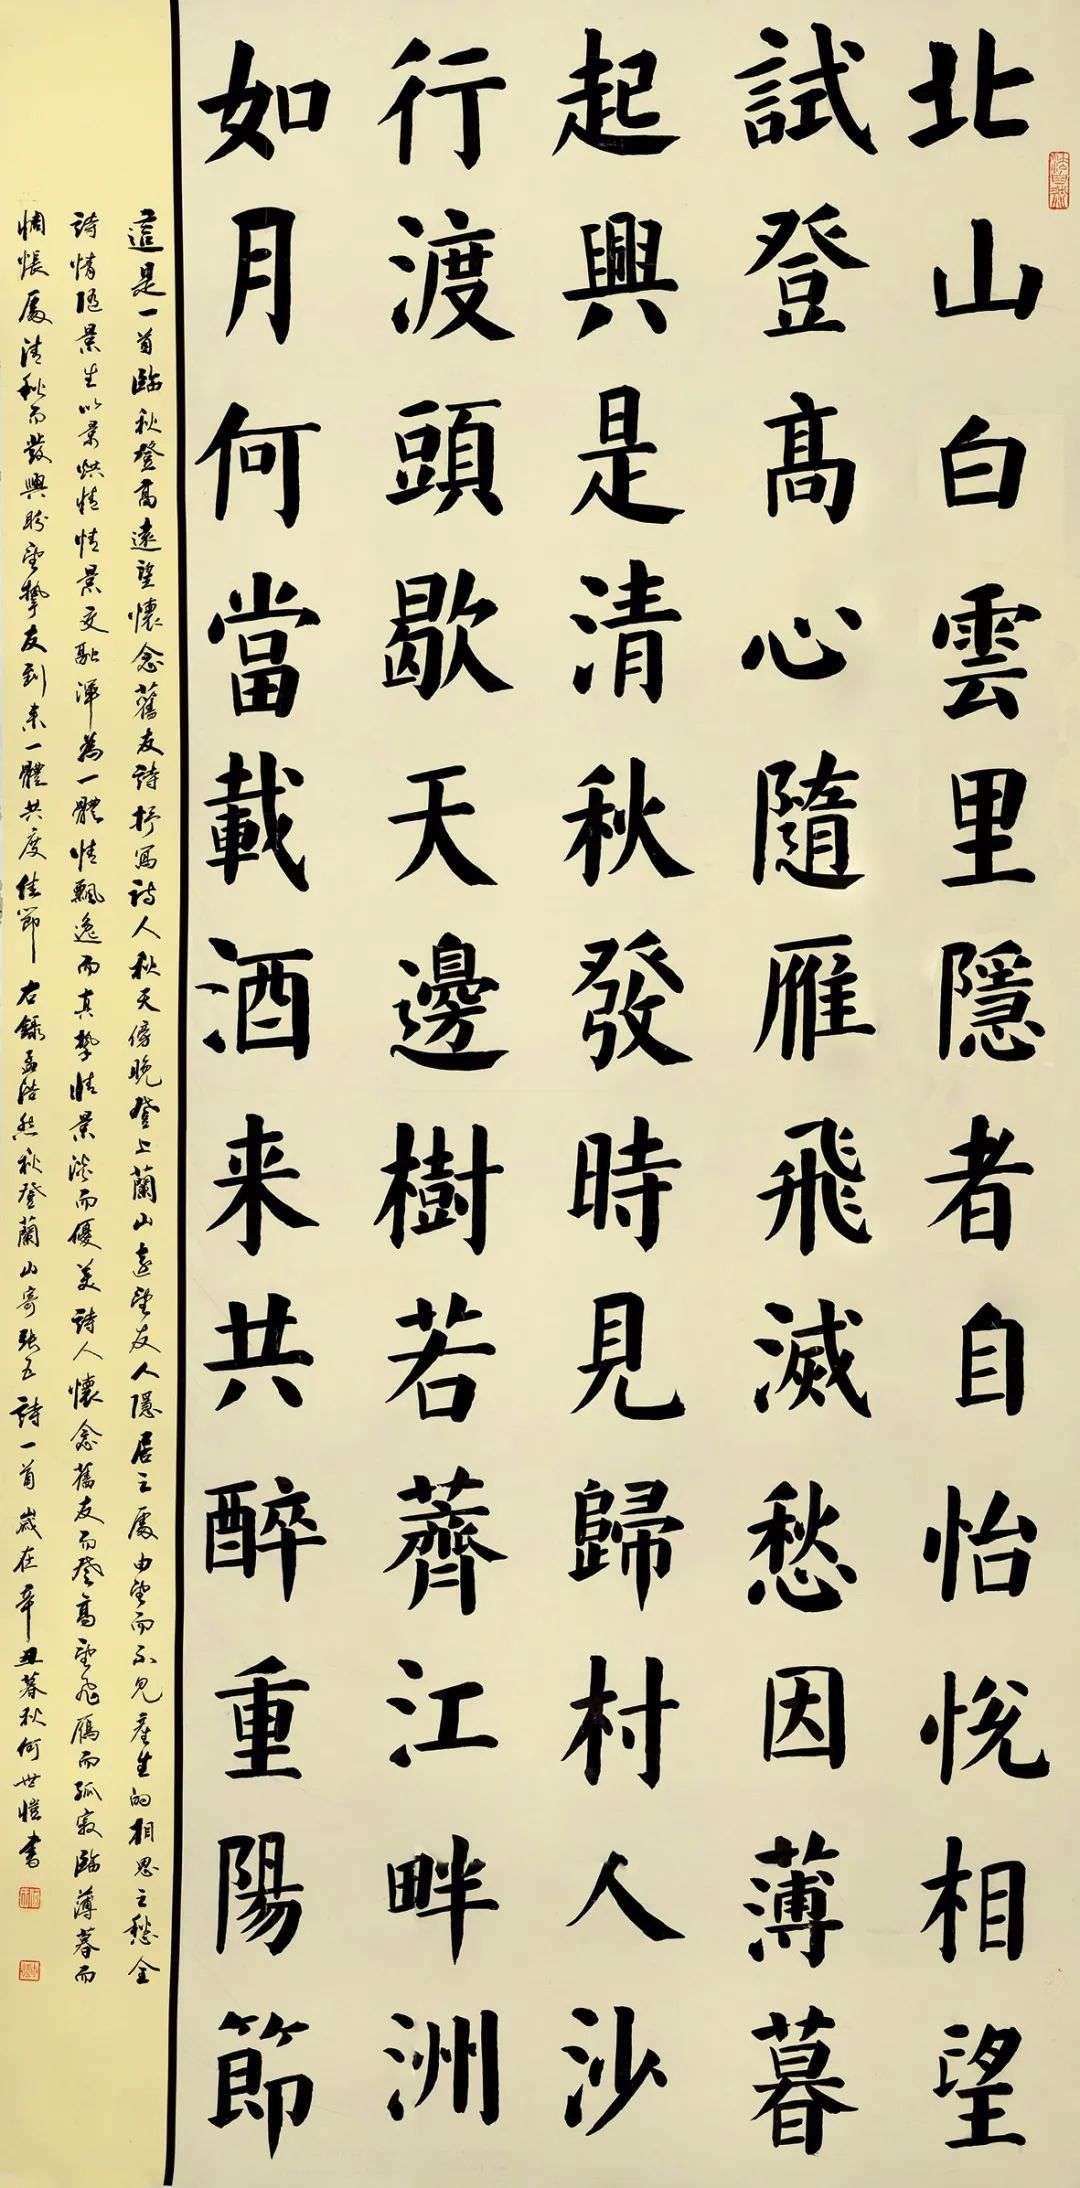 北山白雲里隱者自怡悅相望
試登高心隨雁飛滅愁因薄暮
起興是清秋發時見歸村人沙
行渡頭歇天邊樹若薺江畔洲
如月何當載酒来共醉重陽節
這是一首臨秋登高遠望懷念舊友詩抒寫詩人秋天傍晚登上蘭山遠望友人隱居之處由望而不見產生的相思之愁全
詩情隨景生以景烘情情景交融渾為一體情飄逸而真摯情景淡而優美詩人懷念舊友而登高望飛雁而孤寂臨薄暮而
惆悵處清秋而發興盼望摯友到来一體共度佳節 右錄孟浩然秋登蘭山寄張五詩一首歲在辛丑暮秋何世愷書